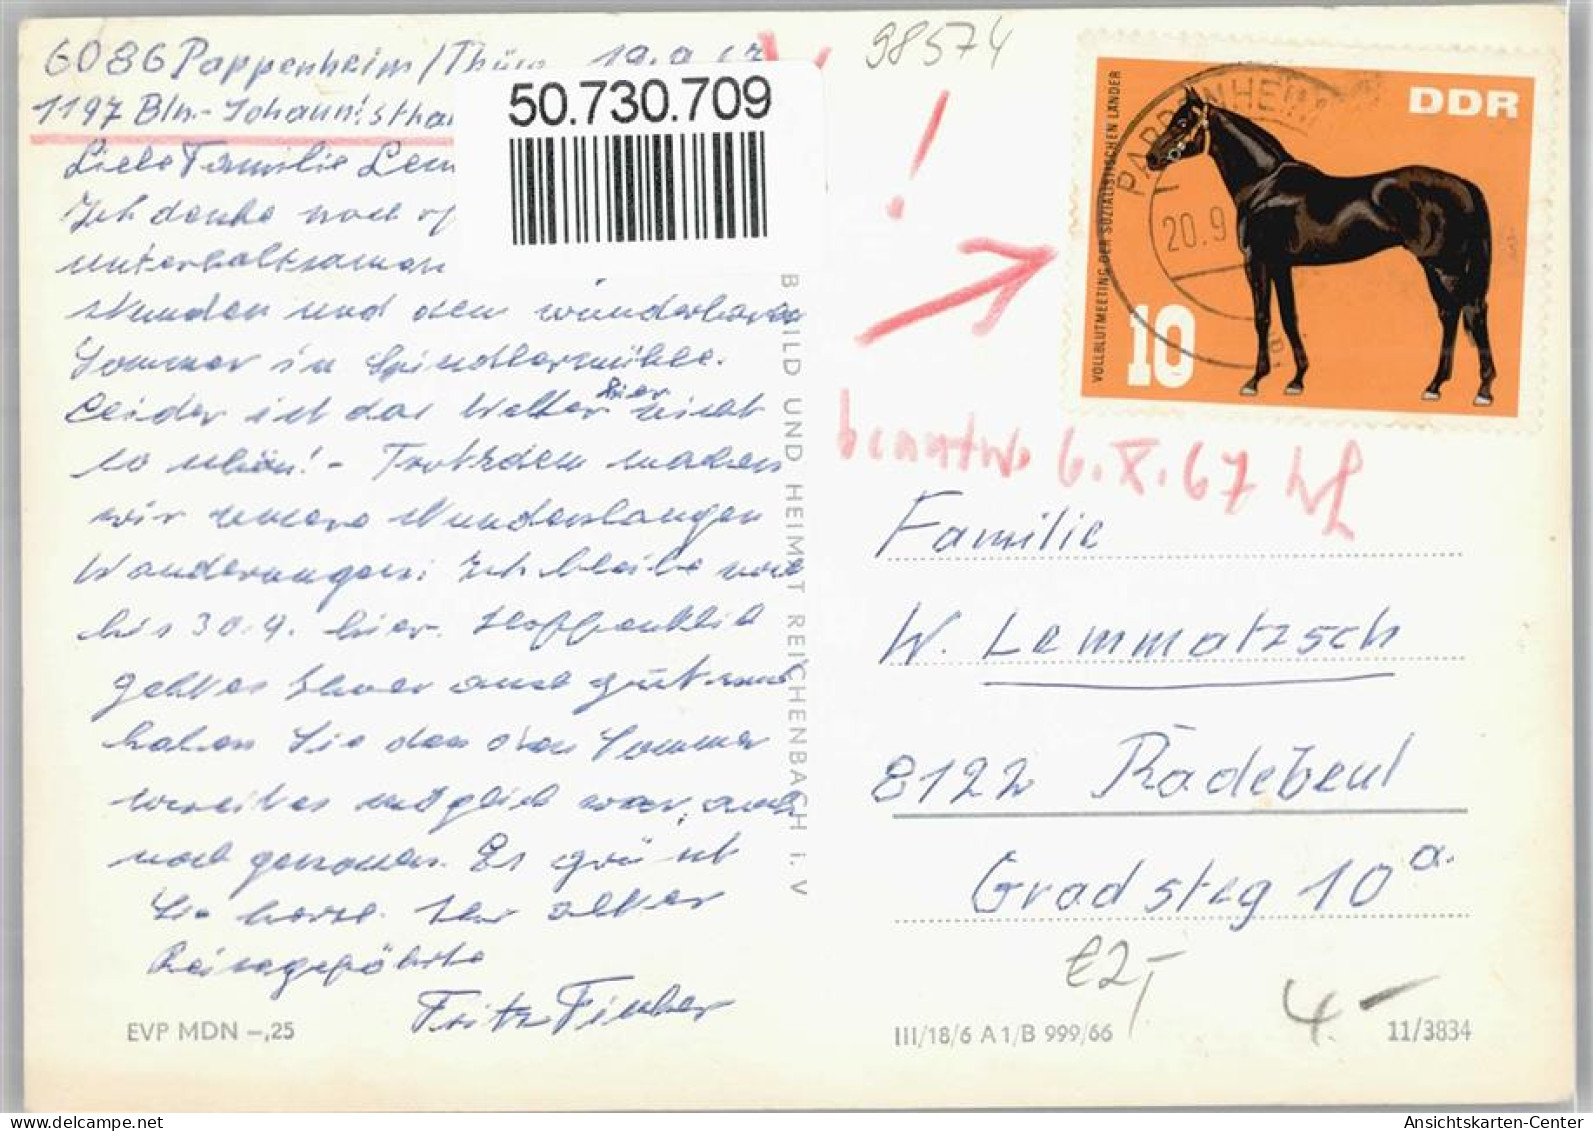 6086 Pappenheim/Thür. 19.9.67
1197 Bln.-Johannistha
Liebe Familie Lem
Ich denke noch of
unterhaltsamen
Stunden und den wunderbaren
Sommer in Spindlermühle.
Leider ist das Wetter hier nicht
so schön! - Trotzdem machen
wir unsere stundenlangen
Wanderungen. Ich bleibe noch
bis 30.9. hier. Hoffentlich
geht es Ihnen auch gut und
haben Sie den den Sommer
soweit es möglich war, auch
noch genossen. Es grüßt
Sie herzl. Ihr alter
Reisegefährte
Fritz Fischer
EVP MDN -,25
50.730.709
BILD UND HEIMAT REICHENBACH i. V
98574
!
DDR
VOLLBLUTMEETING DER SOZIALISTISCHEN LÄNDER
10
PAPPENHEIM
20.9
beantw. 6.X.67
Familie
W. Lemmatzsch
8122 Radebeul
Gradsteg 10a.
€2,-
4.-
III/18/6 A 1/B 999/66
11/3834
Ansichtskarten-Center